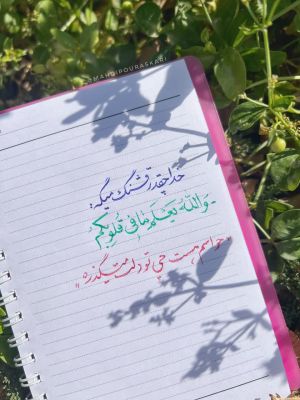 @MAHDIPOURASKARI
خدا چقدر قشنگ میگه:
- وَاللّهُ یَعْلَمُ مَا فِی قُلُوبِکُمْ
«حواسم هست چی تو دلت میگذره»